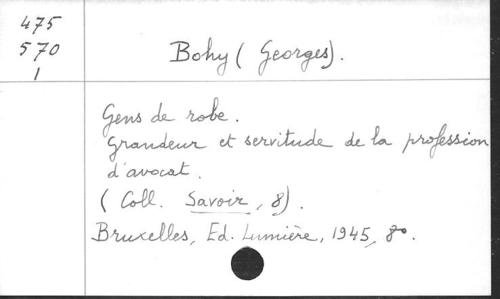 475
570
1
Bohy (Georges).
Gens de robe.
Grandeur et servitude de la profession
d'avocat.
(Coll. Savoir, 8).
Bruxelles, Ed. Lumière, 1945, 8º.